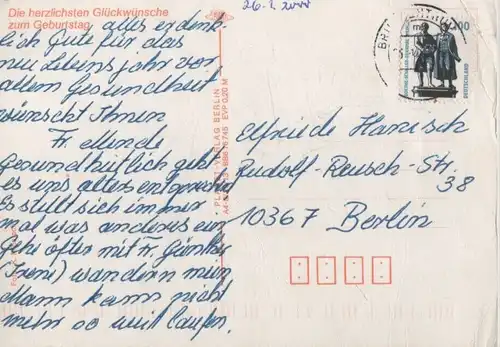 Die herzlichsten Glückwünsche
zum Geburtstag
alles erdenk
lich Gute für das
neue Lebensjahr vor
allem Gesundheit
wünscht Ihnen
Fr.
Gesundheitlich geht
es uns altersentsprechend
Es stellt sich immer
mal was anderes ein
Gehe öfter mit Fr. Günther
(Ireni) wandern mein
Mann kann nicht
mehr so weit laufen.
26.1.
PLANET-VERLAG BERLIN
EVP 0,20 M
100
DEUTSCHLAND
Elfriede Hanisch
Rudolf-Reusch-Str.
38
10367 Berlin